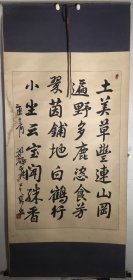 土美草豐連山岡
遍野多鹿恣食芳
翠茵鋪地白鶴行
小坐云宝闻殊香